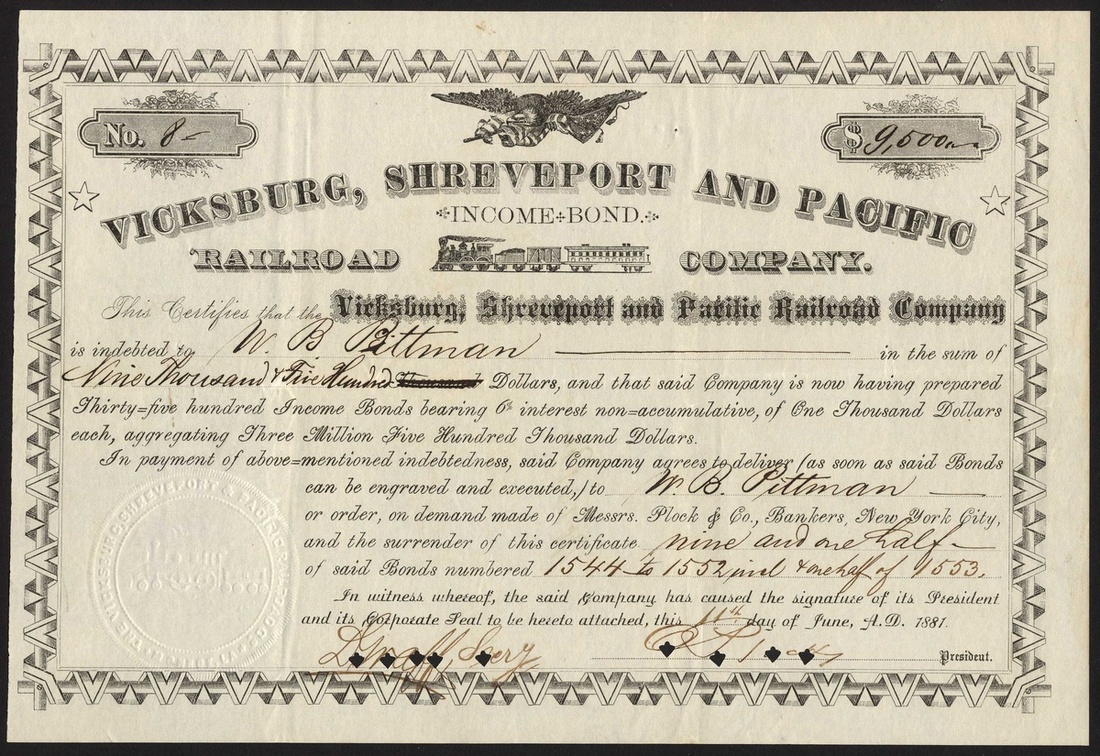 No. 8–
$ 9,500
VICKSBURG, SHREVEPORT AND PACIFIC
INCOME BOND.
RAILROAD COMPANY.
This Certifies that the Vicksburg, Shreveport and Pacific Railroad Company
is indebted to W. B Pittman in the sum of
Nine Thousand & Five Hundred Thousand Dollars, and that said Company is now having prepared
Thirty=five hundred Income Bonds bearing 6% interest non=accumulative, of One Thousand Dollars
each, aggregating Three Million Five Hundred Thousand Dollars.
In payment of above=mentioned indebtedness, said Company agrees to deliver (as soon as said Bonds
can be engraved and executed,) to W. B. Pittman
or order, on demand made of Messrs. Plock & Co., Bankers, New York City,
and the surrender of this certificate nine and one half
of said Bonds numbered 1544 to 1552 incl & one half of 1553.
In witness whereof, the said Company has caused the signature of its President
and its Corporate Seal to be hereto attached, this 11th day of June, A.D. 1881.
Secry
President.